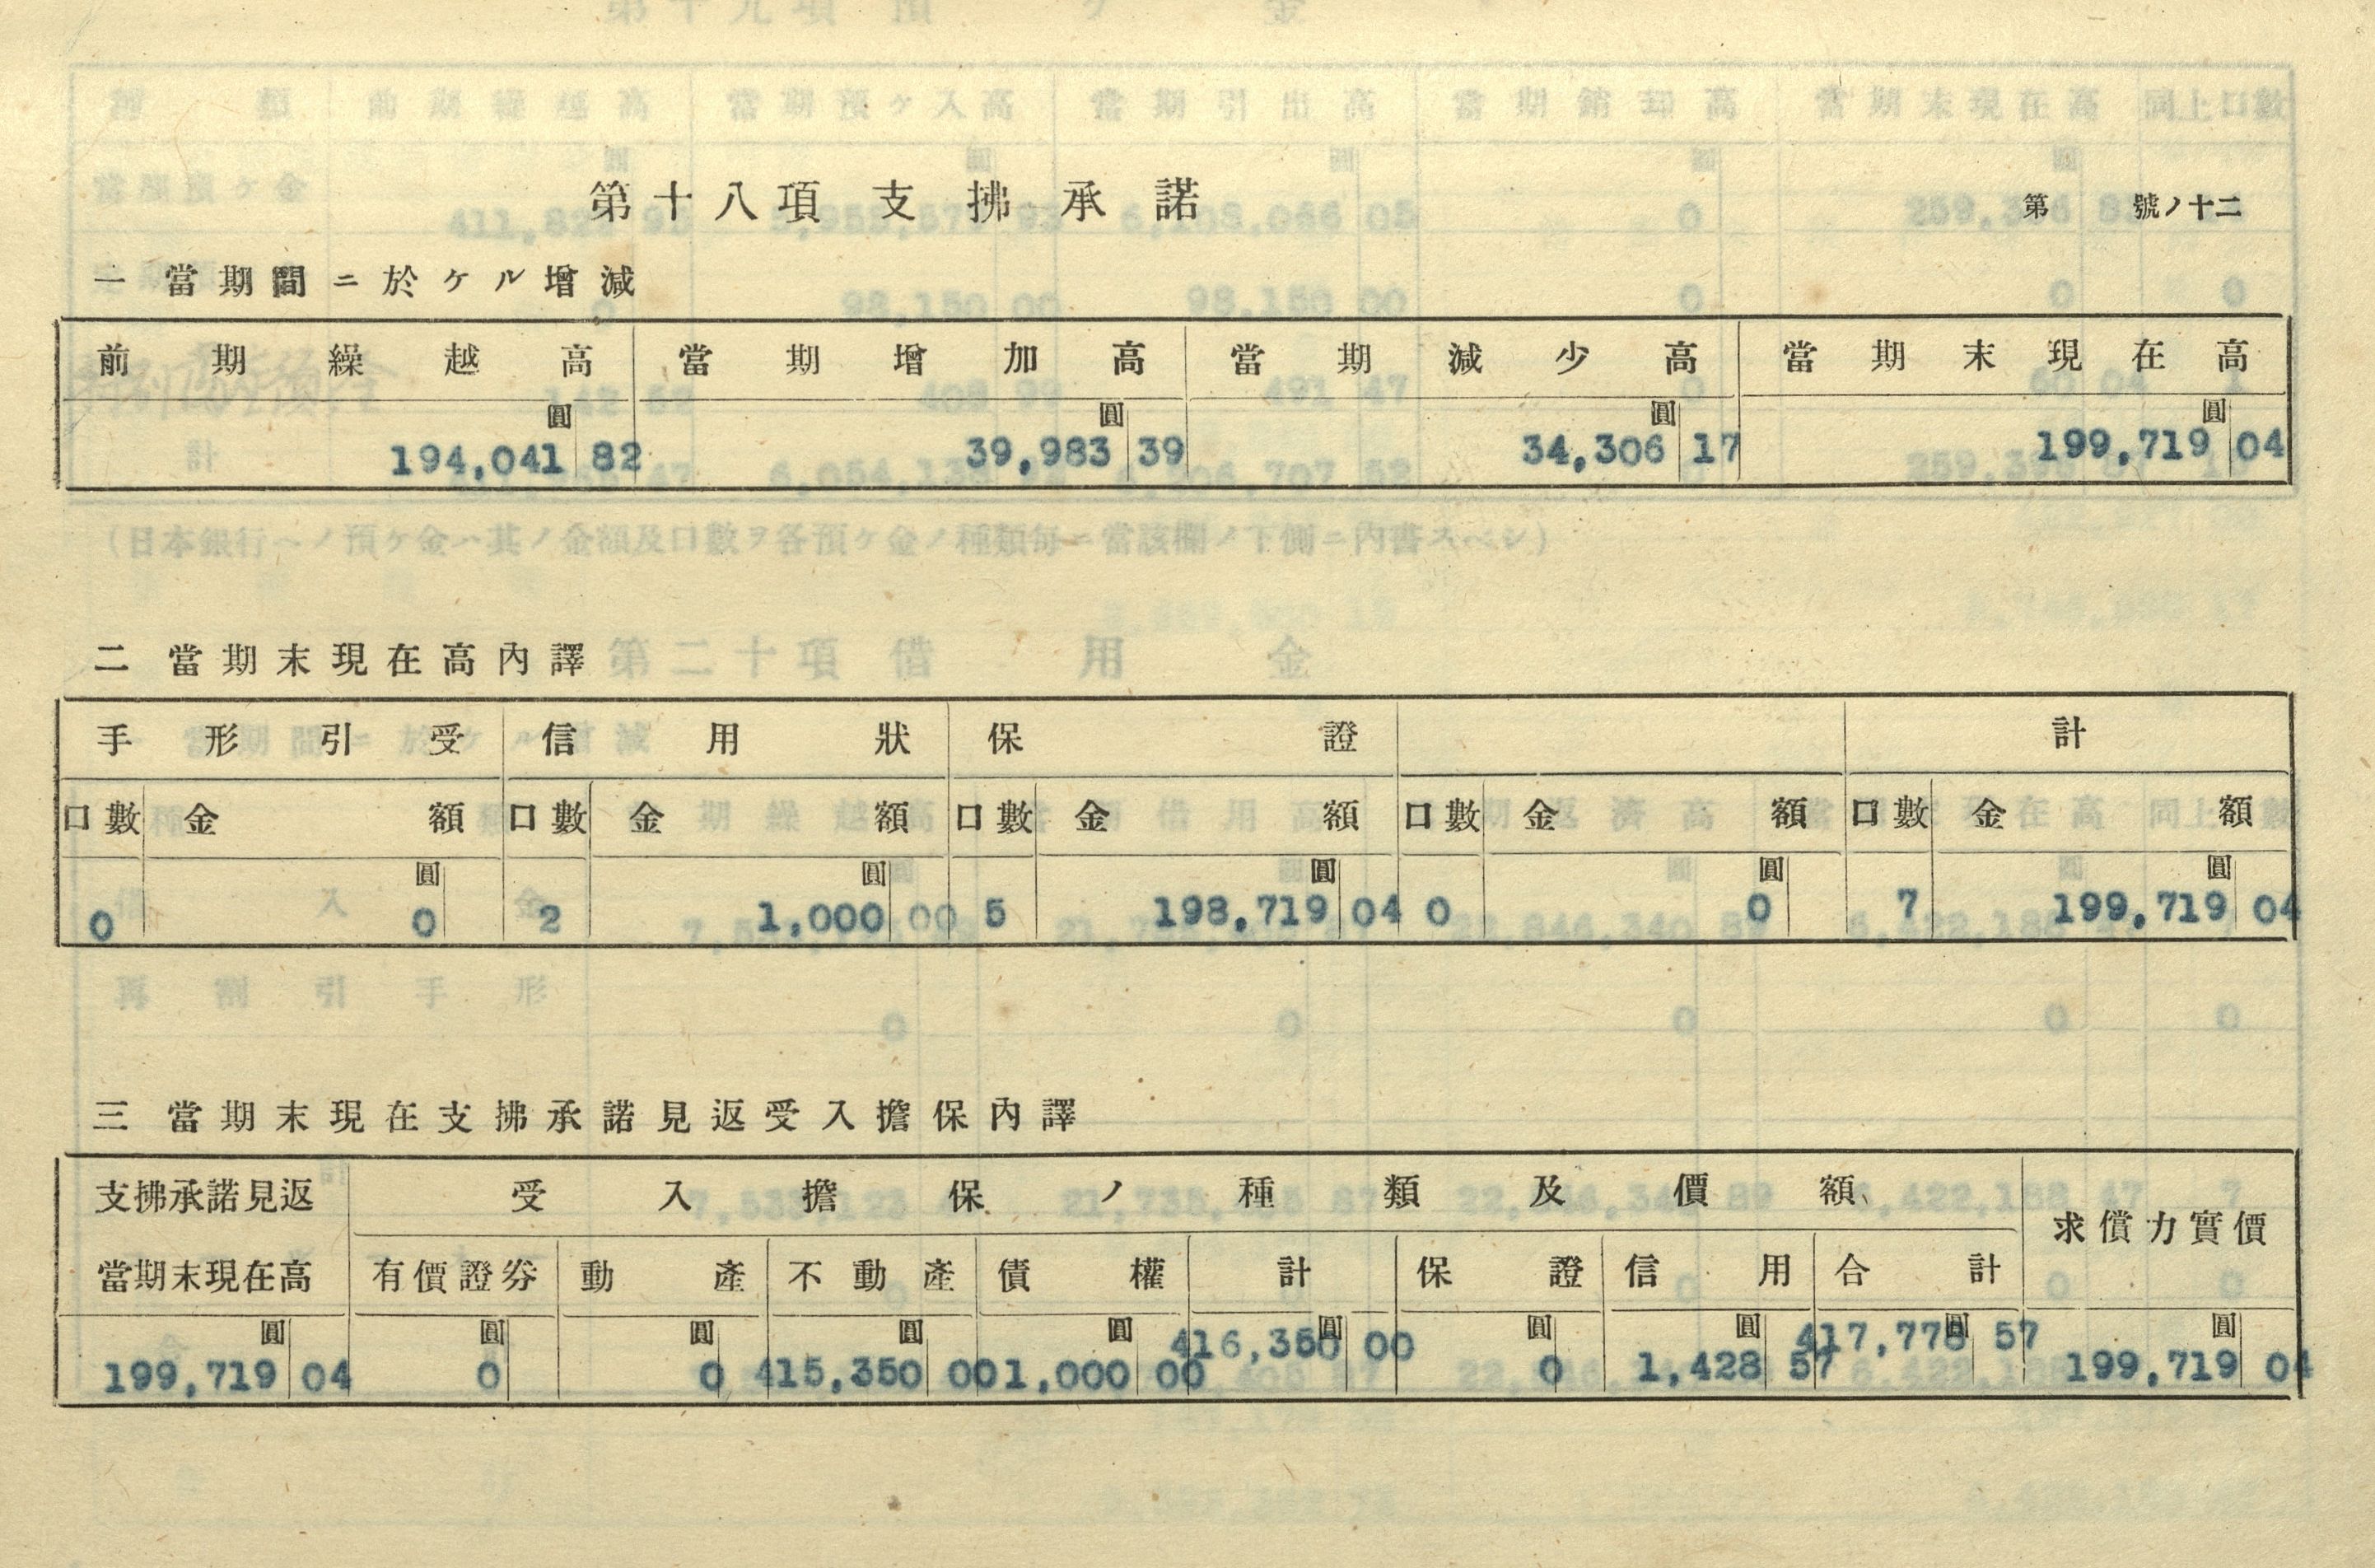 第十八項 支拂承諾
第 號ノ十二
一 當期間ニ於ケル增減
前期繰越高 當期增加高 當期減少高 當期末現在高
圓 圓 圓 圓
194,041 82 39,983 39 34,306 17 199,719 04
二 當期末現在高內譯
手形引受 信用狀 保證 計
口數 金額 口數 金額 口數 金額 口數 金額 口數 金額
圓 圓 圓 圓 圓
0 0 2 1,000 00 5 198,719 04 0 0 7 199,719 04
三 當期末現在支拂承諾見返受入擔保內譯
支拂承諾見返 受入擔保ノ種類及價額 求償力實價
當期末現在高 有價證券 動產 不動產 債權 計 保證 信用 合計
圓 圓 圓 圓 圓 圓 圓 圓 圓 圓
199,719 04 0 0 415,350 00 1,000 00 416,350 00 0 1,428 57 417,778 57 199,719 04